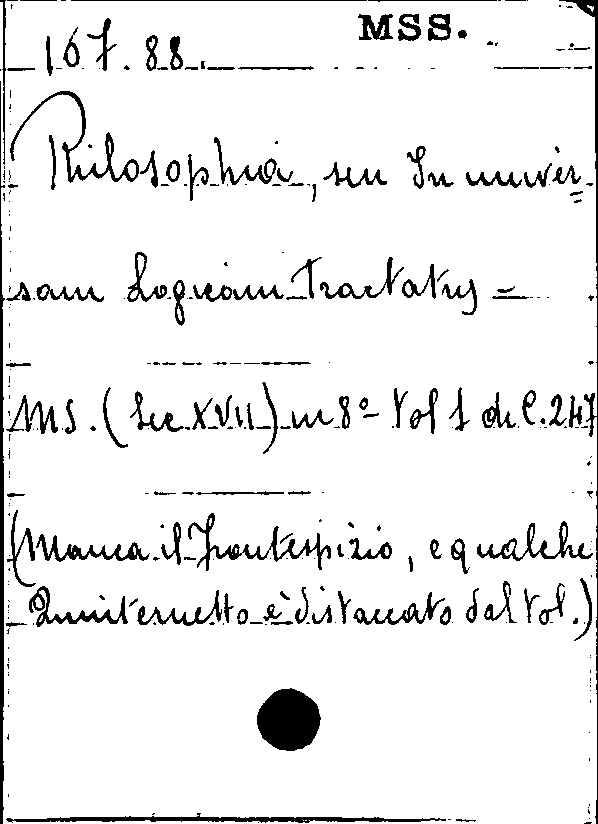 MSS.
167.88.
Philosophia, seu In univer=
sam Logicam Tractatus =
MS. (Sec XVII) in 8º - Vol 1 di C. 247
(Manca il Frontespizio, e qualche
Quinternetto è distaccato dal Vol.)